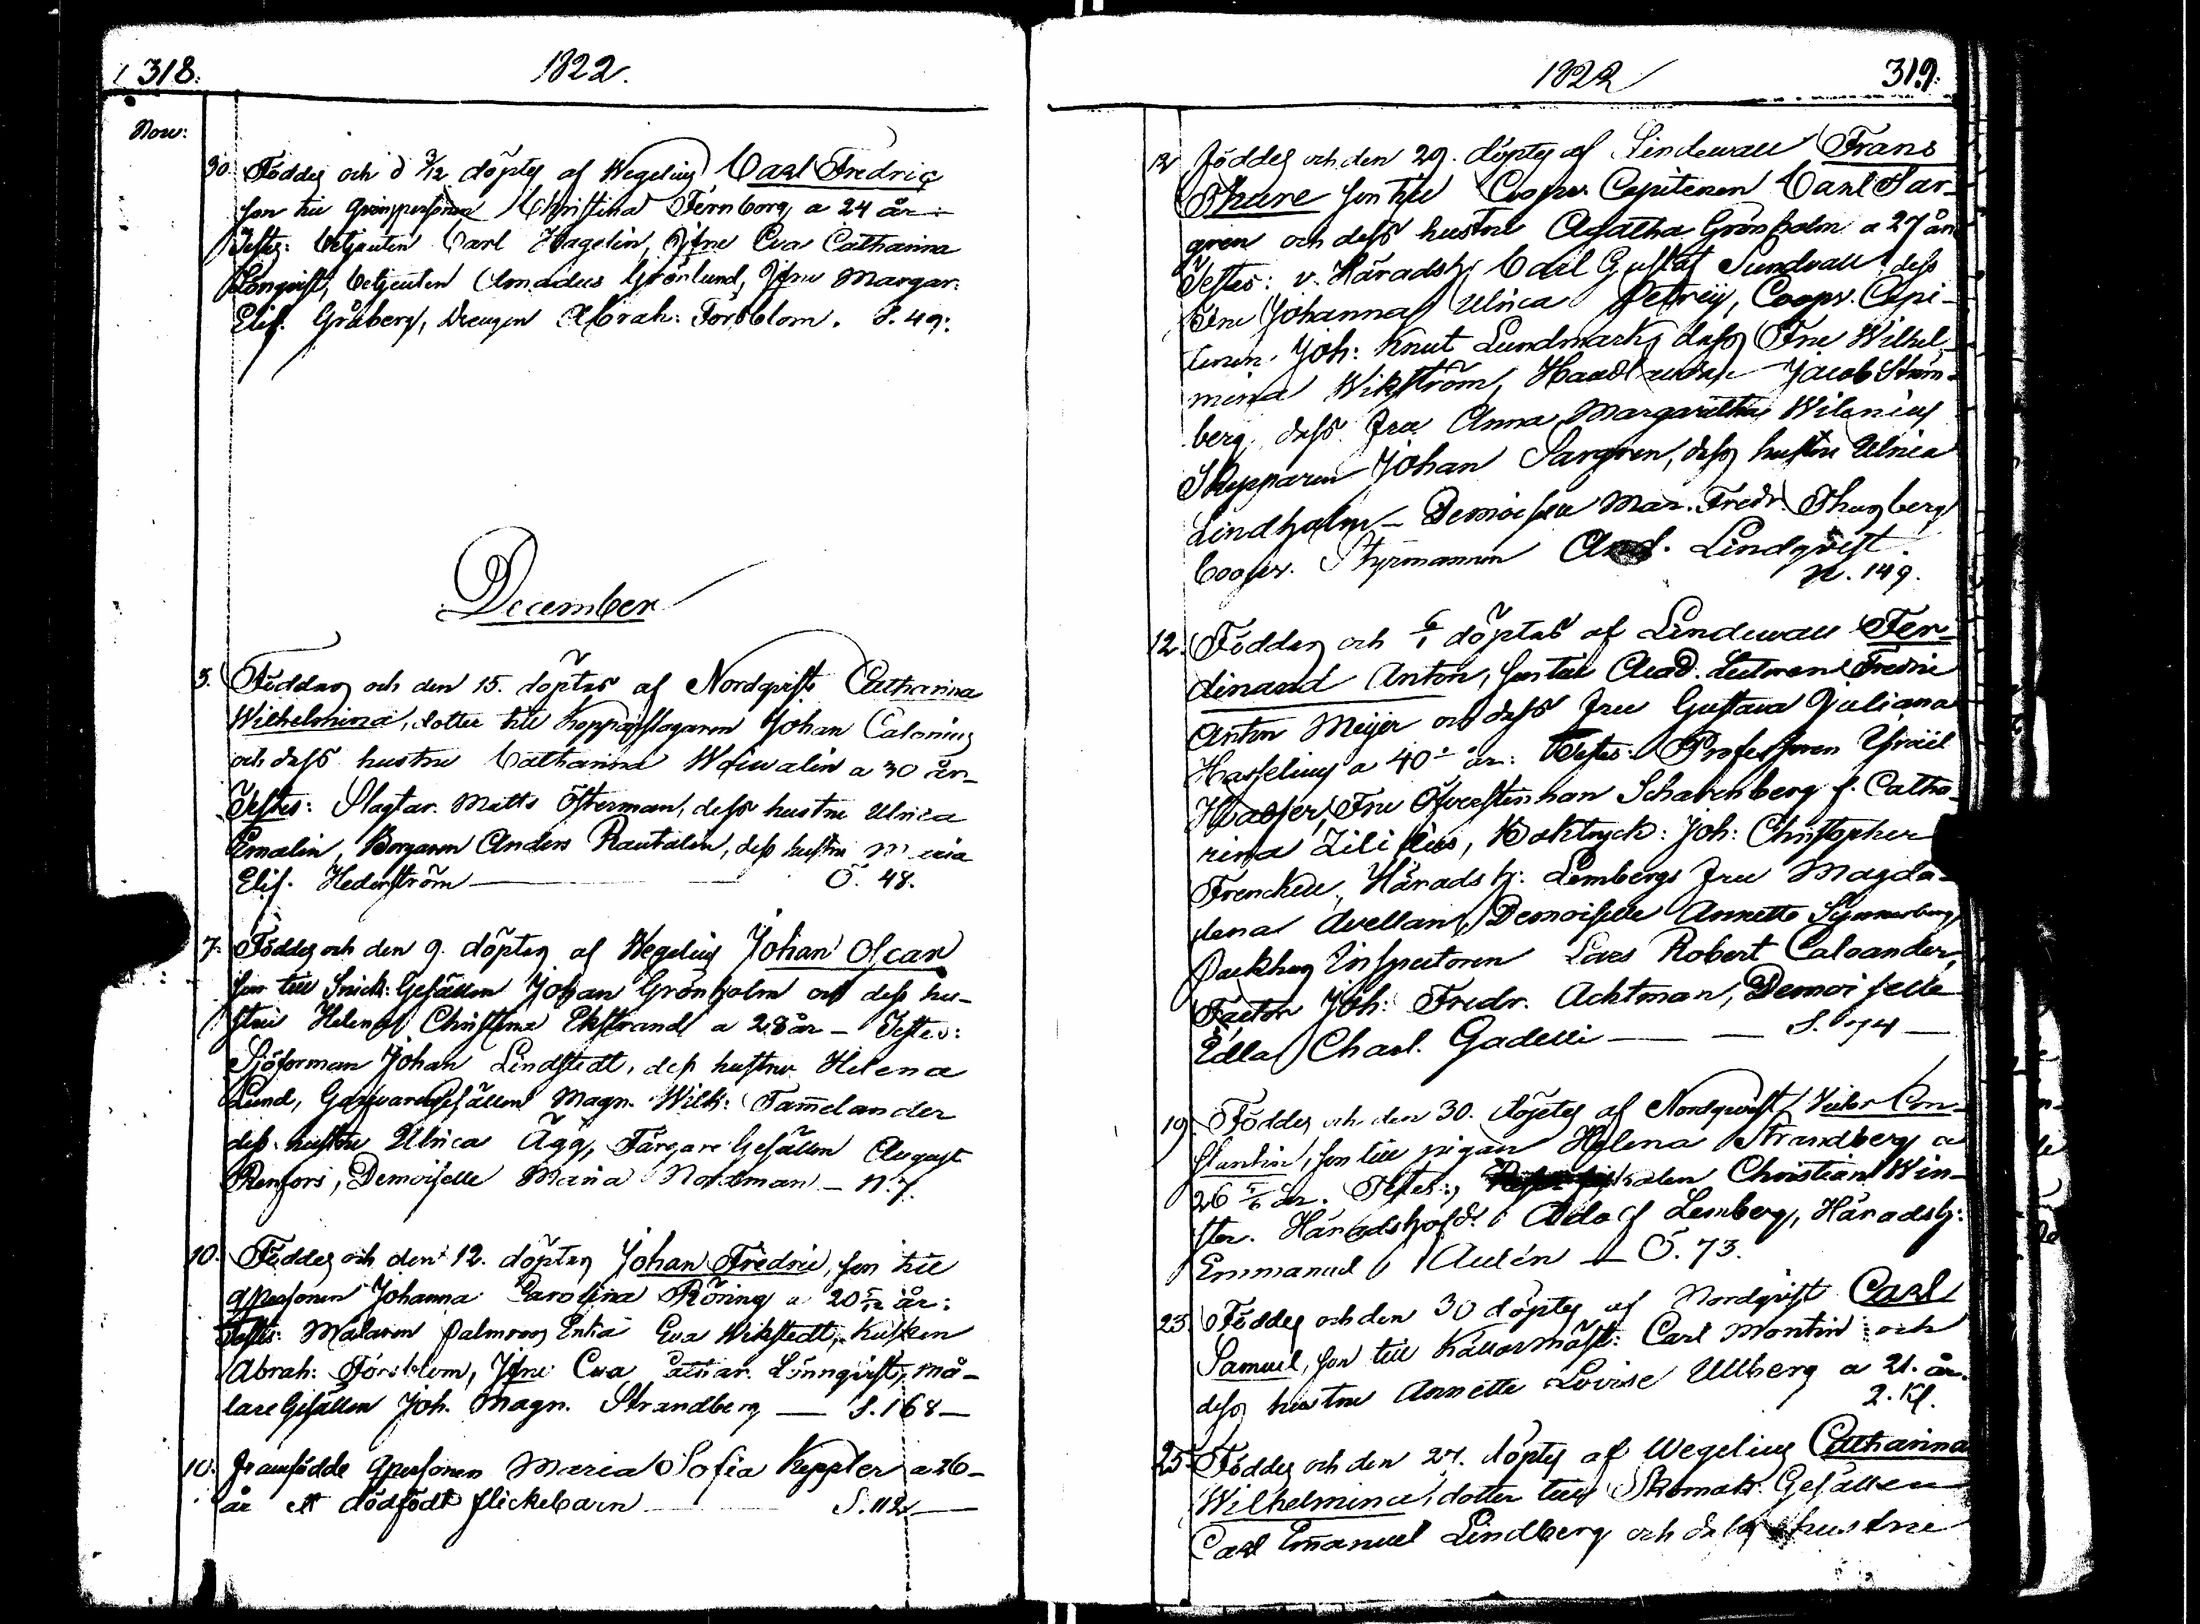 318.
1822.
Nov:
30. Föddes och d 3/12 döptes af Wegelius Carl Fredric
son till qvinspersonen Christina Fernborg a 24 år
Testes: betjenten Carl Hagelin, Jfru Eva Catharina
Lönqvist, betjenten Amadeus Grönlund, Jfru Margar:
Elis. Gråberg, Drengen Abrah: Forsblom. S. 49:
December
5. Föddes och den 15. döptes af Nordqvist Catharina
Wilhelmina, dotter till Kopparslagaren Johan Calonius
och dess hustru Catharina a 30 år
Testes: Slagtar. Matts Österman, dess hustru Ulrica
Emalin, Borgaren Anders Rautalin, dess hustru Maria
Elis. Hederström Ö. 48.
7. Föddes och den 9. döptes af Wegelius Johan Oscar
son till Snick: Gesällen Johan Grönholm och dess hu-
stru Helena Christina Ekstrand a 28 år – Testes:
Sjöforman Johan Lindstedt, dess hustru Helena
Lund, Garfvare Gesällen Magn. Wilh: Tam̅elander
dess hustru Ulrica Ägg, Färgare Gesällen August
Renfors, Demoiselle Maria Nordman – N. 7.
10. Föddes och den 12. döptes Johan Fredric, son till
qpersonen Johanna Carolina Röring a 20 5/12 år:
Testes: Målaren Palmroos Enka Eva Wikstedt, Kusken
Abrah: Forsblom, Jfru Eva Cathar. Lönnqvist, Må-
lare Gesällen Joh. Magn. Strandberg — S. 168 —
10. Framfödde qpersonen Maria Sofia Keppler a 26 –
år ett dödfödt flickebarn S. 112 —
1822
319.
12 Föddes och den 29. döptes af Lindewall Frans
Thure son till Coopv. Capitenen Carl Sar-
gren och dess hustru Agatha Grönholm a 27 år
Testes: v. Häradsh. Carl Gustaf Sundvall dess
Fru Johanna Ulrica Petreij, Coopv. Capi-
tenen Joh: Knut Lundmark, dess Fru Wilhel-
mina Wikström, Jacob Ström-
berg, dess Fru Anna Margaretha Wilenius
Skepparen Johan Sargren, dess hustru Ulrica
Lindholm – Demoisella Mar. Fredr.
Coopv. Styrmannen And. Lindqvist.
N. 149.
12. Föddes och 6/1 döptes af Lindewall Fer-
dinand Anton, son till Acad. Lectoren Fredric
Anton Meijer och dess Fru Gustava Juliana
Hasselius a 40 år: Testes: Professoren Israël
Hwasser, Fru Öfverstinnan Scharenberg f. Catha-
rina Liliðlius, Boktryck: Joh: Christopher
Frenckell, Häradsh: Lembergs Fru Magda-
lena Avellan, Demoiselle Annette
Packhus Inspectoren Lars Robert Caloander,
Factor Joh: Fredr. Achtman, Demoiselle
Edla Charl. Gadelli — — S. 74 —
19. Föddes och den 30. döptes af Nordqvist Victor Con-
stantin, son till pigan Helena Strandberg a
26 år. Testes: Christian Win-
ter. Häradshöfd. Adolf Lemberg, Häradsh:
Emmanuel Aulén — Ö. 73.
23. Föddes och den 30 döptes af Nordqvist Carl
Samuel, son till Källarmäst: Carl Montin och
dess hustru Annette Lovise Ullberg a 21. år.
2. Kl.
25. Föddes och den 27. döptes af Wegelius Catharina
Wilhelmina, dotter till Skomak: Gesällen
Carl Em̅anuel Lindberg och dess hustru